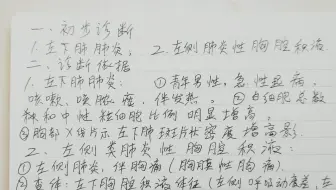 一、初步诊断
1.左下肺肺炎； 2.左侧肺炎性胸腔积液
二、诊断依据
1.左下肺肺炎：①青年男性，急性起病，
咳嗽、咳脓痰，伴发热。②白细胞总数
和中性粒细胞比例明显增高。
③胸部X线片示左下肺斑片状密度增高影.
2.左侧类肺炎性胸腔积液：
①左侧肺炎，伴胸痛(胸膜性胸痛).
②查体：左下胸腔积液体征(左侧呼吸动度差，